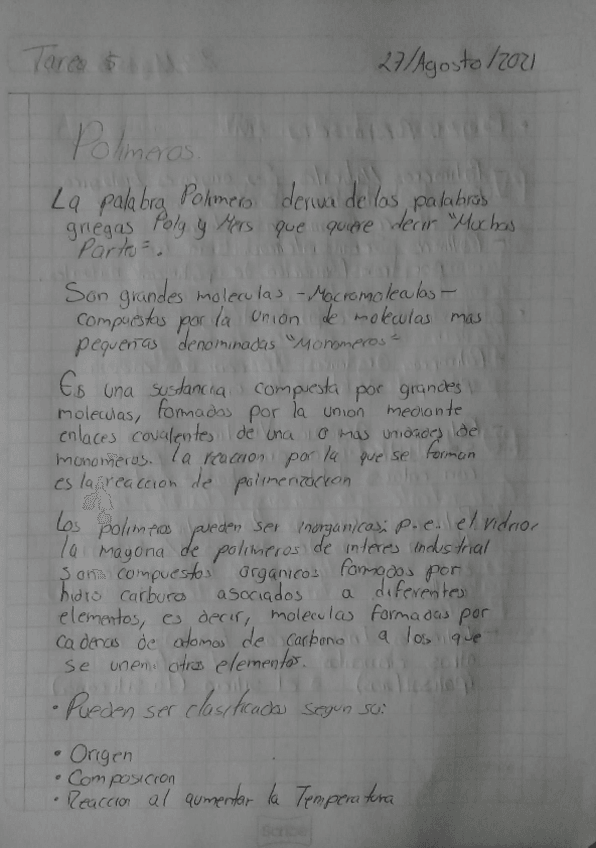 Tarea 5
27/Agosto/2021
Polimeros.
La palabra Polimero deriva de las palabras
griegas Poly y Mers que quiere decir "Muchas
Partes".
Son grandes moleculas -Macromoleculas-
compuestas por la union de moleculas mas
pequeñas denominadas "Monomeros"
Es una sustancia compuesta por grandes
moleculas, formadas por la union mediante
enlaces covalentes de una o mas unidades de
monomeros. la reaccion por la que se forman
es la reaccion de polimerizacion
Los polimeros pueden ser inorganicos: p.e. el vidrio,
la mayoria de polimeros de interes industrial
son compuestos organicos formados por
hidro carburos asociados a diferentes
elementos, es decir, moleculas formadas por
cadenas de atomos de carbono a los que
se unen otros elementos.
• Pueden ser clasificados segun su:
• Origen
• Composicion
• Reaccion al aumentar la Temperatura
Scribe